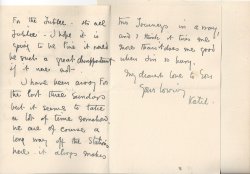 For the Jubilee. It's all
Jubilee. I hope it is
going to be fine it would
be such a great disappointment
if it was not.
I have been away for
the last three Sundays
but it seems to take
a lot of time somehow
we are of course a
long way off the Station
here it always makes
the Journeys in a way,
and I think it tires me
more than it does me good
when I'm so busy.
My dearest love to you
Yours loving
Katie.